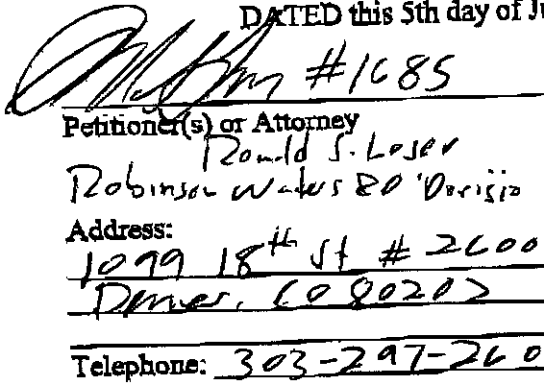 DATED this 5th day of Ju
#1685
Petitioner(s) or Attorney
Ronald S. Loser
Robinson Waters & O'Dorisio
Address:
1099 18th St # 2600
Denver, CO 80202
Telephone: 303-297-260